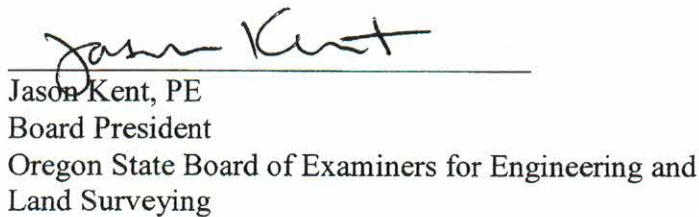 Jason Kent
Jason Kent, PE
Board President
Oregon State Board of Examiners for Engineering and
Land Surveying